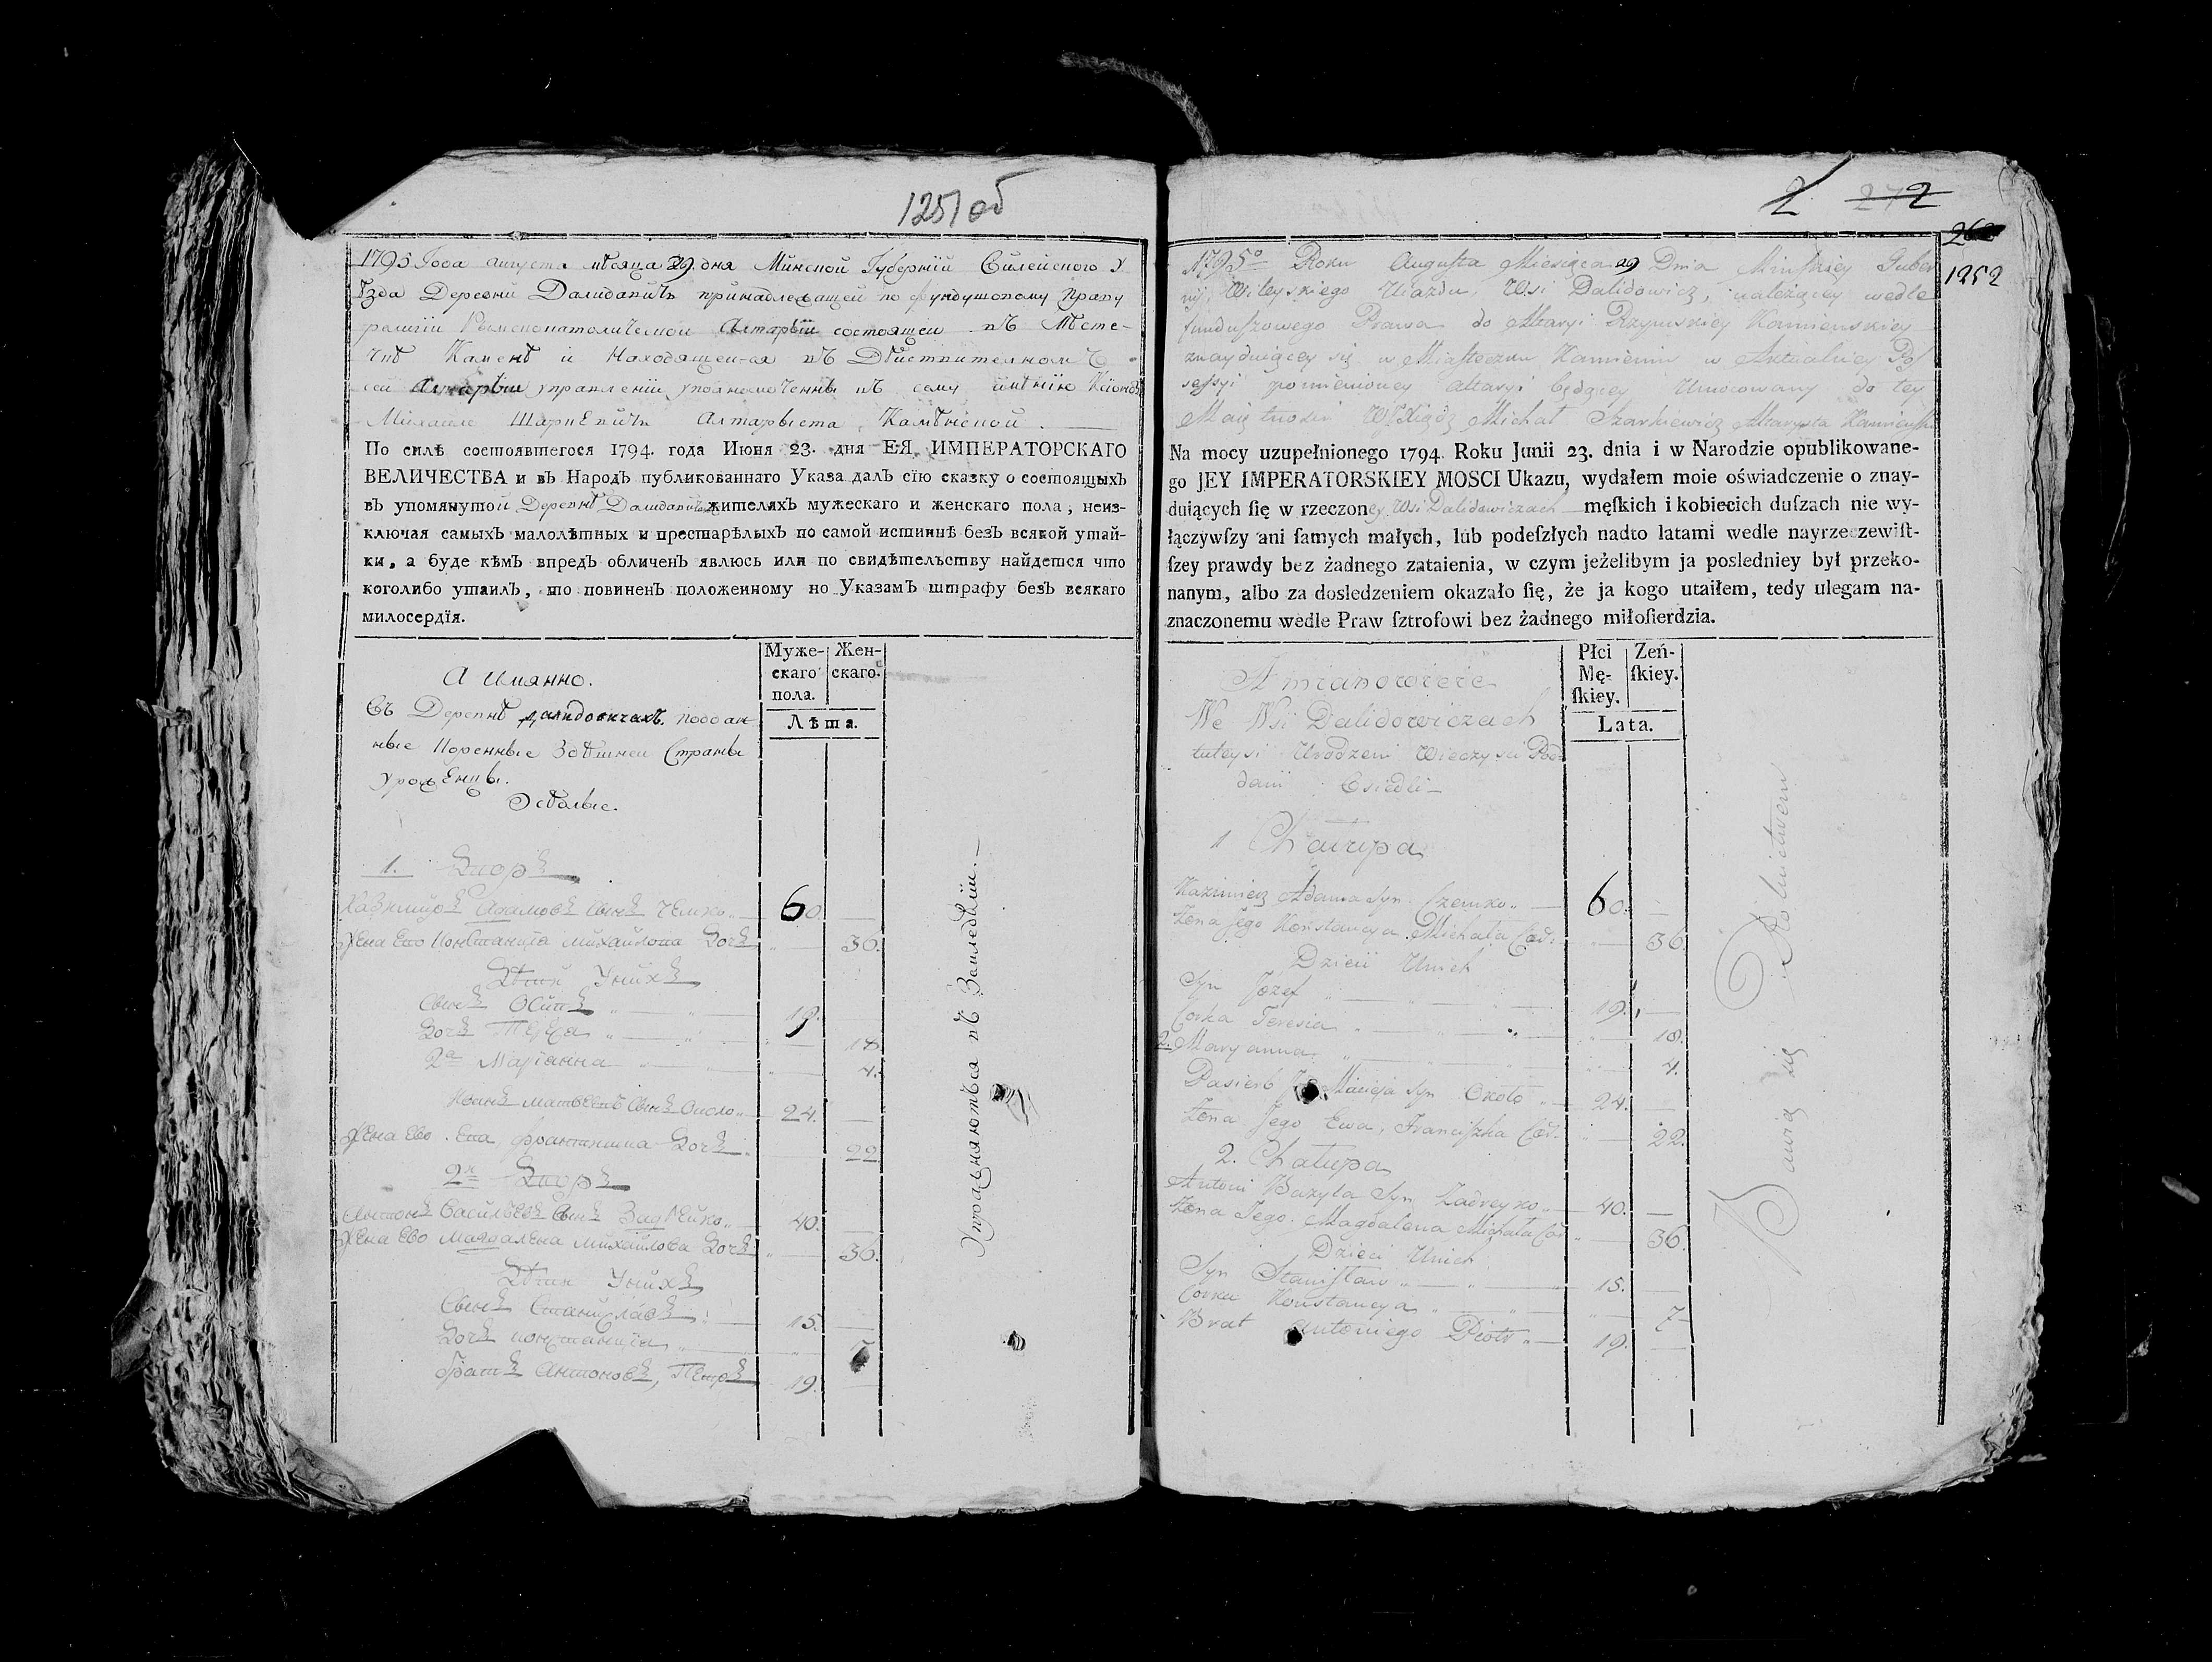 1251 об
1795 Года августа мѣсяца 29 дня Минской Губернїи Вилейского У
ѣзда Деревни Далидавичъ принадлежащей по фундушовому праву
религїи Римскокатолической Алтарїи состоящей въ Мѣсте-
чкѣ Каменѣ и находящей-ся въ Дѣйствителномъ
сей Алтарїи управленїи уполномоченны къ сему имѣнїю Ксіондзъ
Михаилъ Шаркевичъ Алтарыста Камѣнской.
По силѣ состоявшегося 1794. года Июня 23. дня ЕЯ ИМПЕРАТОРСКАГО
ВЕЛИЧЕСТВА и въ Народъ публикованнаго Указа далъ сїю сказку о состоящыхъ
въ упомянутой Деревнѣ Далидавичахъ жителяхъ мужескаго и женскаго пола, неиз-
ключая самыхъ малолѣтных и престарѣлыхъ по самой истиннѣ безъ всякой утай-
ки, а буде кѣмъ впредъ обличенъ явлюсь или по свидѣтельству найдется что
коголибо утаилъ, то повиненъ положенному но Указамъ штрафу безъ всякаго
милосердїя.
А имянно.
Муже-
скаго
пола.
Жен-
скаго.
Лѣта.
Въ Деревнѣ Далидовичахъ поддан-
ные коренные Здѣшней Страны
уроженцы.
Осѣдлые.
1. Дворъ
Казимиръ Адамовъ сынъ Чемко 60
Жена Его Констанцїа Михайлова дочъ 36.
Дѣти У нихъ
Сынъ Осипъ 19.
Дочъ 18.
2а Марїанна 4.
Матвеевъ Сынъ Около 24.
Жена Ево Ева Францишка дочъ 22
2й Дворъ
Антонъ Васильевъ Сынъ Задрейко 40.
Жена Ево Магдалена Михайлова дочъ 36.
Дѣти У нихъ
Сынъ Станиславъ 15.
Дочъ Констанцїа 7
Братъ Антоновъ, Петръ 19.
Упражняютъся въ Земледѣлїи.
2 272
262
1252
1795o Roku Augusta Miesiąca 29 Dnia Minskiey Guber
nij, Wileyskiego Uiazdu, Wsi Dalidowicz, należącey wedle
funduszowego Prawa do Altaryi Rzymskiey Kamienskiey
znayduiącey się w Miasteczku Kamieniu w Aktualney Po
sessyi pomienioney altaryi będącey Umocowany do tey
Maiętnosci WJXiądz Michał Szarkiewicz Altarysta Kamienski
Na mocy uzupełnionego 1794. Roku Junii 23. dnia i w Narodzie opublikowane-
go JEY IMPERATORSKIEY MOSCI Ukazu, wydałem moie oświadczenie o znay-
duiących ſię w rzeczoney Wsi Dalidowiczach męſkich i kobiecich duſzach nie wy-
łączywſzy ani ſamych małych, lub podeſzłych nadto latami wedle nayrzeczewiſt-
ſzey prawdy bez żadnego zataienia, w czym jeżelibym ja posledniey był przeko-
nanym, albo za dosledzeniem okazało ſię, że ja kogo utaiłem, tedy ulegam na-
znaczonemu wedle Praw ſztrofowi bez żadnego miłoſierdzia.
A mianowicie
Płci
Mę-
ſkiey.
Zeń-
ſkiey.
Lata.
We Wsi Dalidowiczach
tuteysi Urodzeni Wieczysci Pod
dani Osiedli
1 Chałupa
Kazimierz Adama Syn Czemko 60.
Zona Jego Konstancya Michała Cór. 36
Dzieci Unich
Syn Józef 19.
Corka Teresia 18.
2. Maryanna 4.
Pasierb Macieja Syn Około 24.
Zona Jego Ewa, Franciszka Cór. 22.
2. Chałupa
Antoni Bazyla Syn Zadreyko 40.
Zona Jego Magdalena Michała Cór 36.
Dzieci Unich
Syn Stanisław 15.
Corka Konstancya 7
Brat Antoniego Piotr 19.
Bawią się Rolnictwem